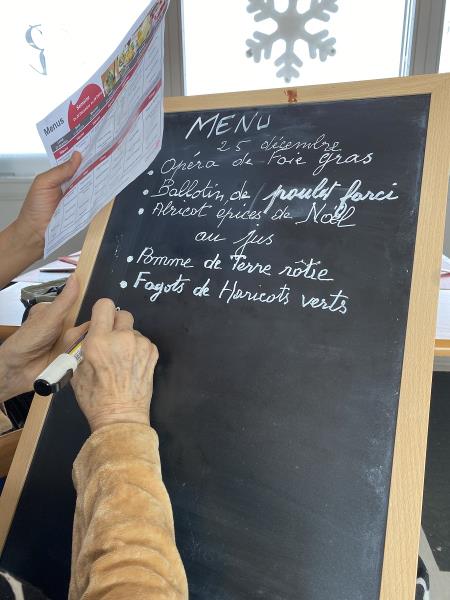 Menus
Semaine
MENU
25 décembre
• Opéra de Foie gras
• Ballotin de poulet farci
• Abricot épices de Noël
au jus
• Pomme de Terre rôtie
• Fagots de Haricots verts